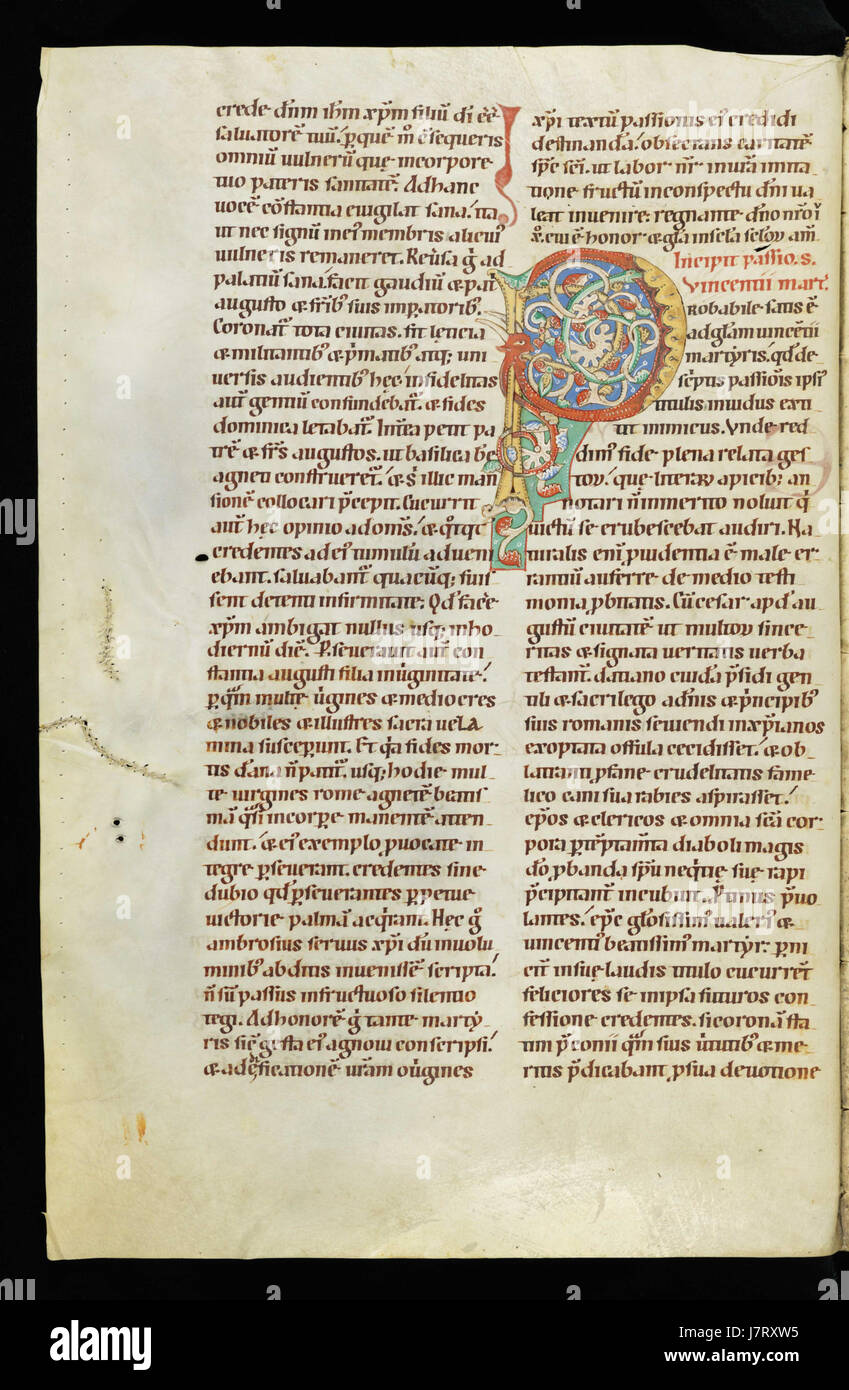 crede dn̄m ih̄m xp̄m filiū di̅ eē
saluatorē tuū. ꝑquē m̊ c̄sequeris
omniū uulnerū que incorpore
tuo pateris sanitatē. Adhanc
uocē cōstantia euigilat sana. ita
ut nec signū inei' membris alicui'
uulneris remaneret. Reu̓sa g̊ ad
palatiū sana. facit gaudiū & pat̓
augusto & frīb' suis imꝑatorib'.
Coronat̓ tota ciuitas. fit leticia
& militantib' & p̓matib' atq; uni
uersis audientib' hęc. infidelitas
aut̄ gentiū confundebat̓. & fides
dominica letabat̓. Int̓ea petit pa
trē & fr̄s augustos. ut basilica bē
agnetı construeret̓. & s̓ illic man
sionē collocari p̄cepit. Cucurrit
aut̄ hęc opinio adom̄s. & q̊tq̊t
credentes adei' tumulū adueni
ebant. saluabant̓ quacūq; fuis
sent detenti infirmitate. Qd̓ face̅
xp̄m ambigat nullus usq; inho
diernū diē. Perseuerauit aut̄ con
stantia augusti filia inu̓ginitate.
ꝑ quā multe u̓gines & mediocres
& nobiles & illustres sacra uela
mina susceperunt. Et q̓a fides mor
tis dāna n̄ patit̓. usq; hodie mul
te uirgines rome agnetē beatis
mā q̓si incorpore manentē atten
dunt. & ei' exemplo ꝓuocate in
tegre ꝑseuerant. credentes sine
dubio qd̓ ꝑseuerantes ꝑpetue
uictorie palmā acq̓rant. Hęc g̊
ambrosius seruus xp̄i dū inuolu
minib' abditis inuenissē scripta.
n̄ sū passus infructuoso silentio
tegi. Adhonorē g̊ tante marty
ris sic̄ gesta ei' agnoui conscripsi.
& adędificationē ur̄am o u̓gines
xp̄i textū passionis ei' credidi
destinandā. obsecrans caritatē
sp̄c sc̄i. ut labor nr̄ inur̄a imita
tione fructū inconspectu dn̄i ua
leat inuenire. regnante dn̄o nr̄o ı̄
x̊. cui ē honor & gl̄a insecl̄a seclo℞ am̄
Incipit passio. s.
Vincentii mart̓.
PRobabile satis ē
adgl̄am uincētii
martyris. qd̓ de
scriptis passiōis ipsi'
titulis inuidus exti
tit inimicus. Vnde red
dim' fide plena relata ges
to℞. que litera℞ apicib' an
notari n̄ immerito noluit q̓
uictū se erubescebat audiri. Na
turalis eni̅ ꝓuidentia ē male er
rantiū auferre de medio testi
monia ꝓbitatis. Cū cesar apd̓ au
gustū ciuitatē ut multo℞ since
ritas & signata ueritatis uerba
testant̓. datiano cuidā p̄sidi gen
tili & sacrilego ad̄nis & p̓ncipib'
suis romanis seuiendi inxp̄ianos
exoptata offula cecidisset. & ob
latranti ꝓfane crudelitatis fame
lico cani sua rabies aspirasset.
ep̄os & clericos & omnia sc̄i cor
pora ꝑ tēptam̄ta diaboli magis
do, ꝓbanda sp̄u neq̓tię suę rapi
p̄cipitant̓ incubuit. P̓mus p̄uo
lantes. ep̄c gl̄osissim' ualeri' &
uincenti' beatissim' martyr. ꝑni
cit̓ insuę laudis titulo cucurrer̄t
feliciores se impsa futuros con
fessione credentes. si coronā sta
tim p̄conii q̓m suis u̓tutib' & me
ritis p̄dicabant, ꝓsua deuotione
alamy
Image ID: J7RXW5
www.alamy.com